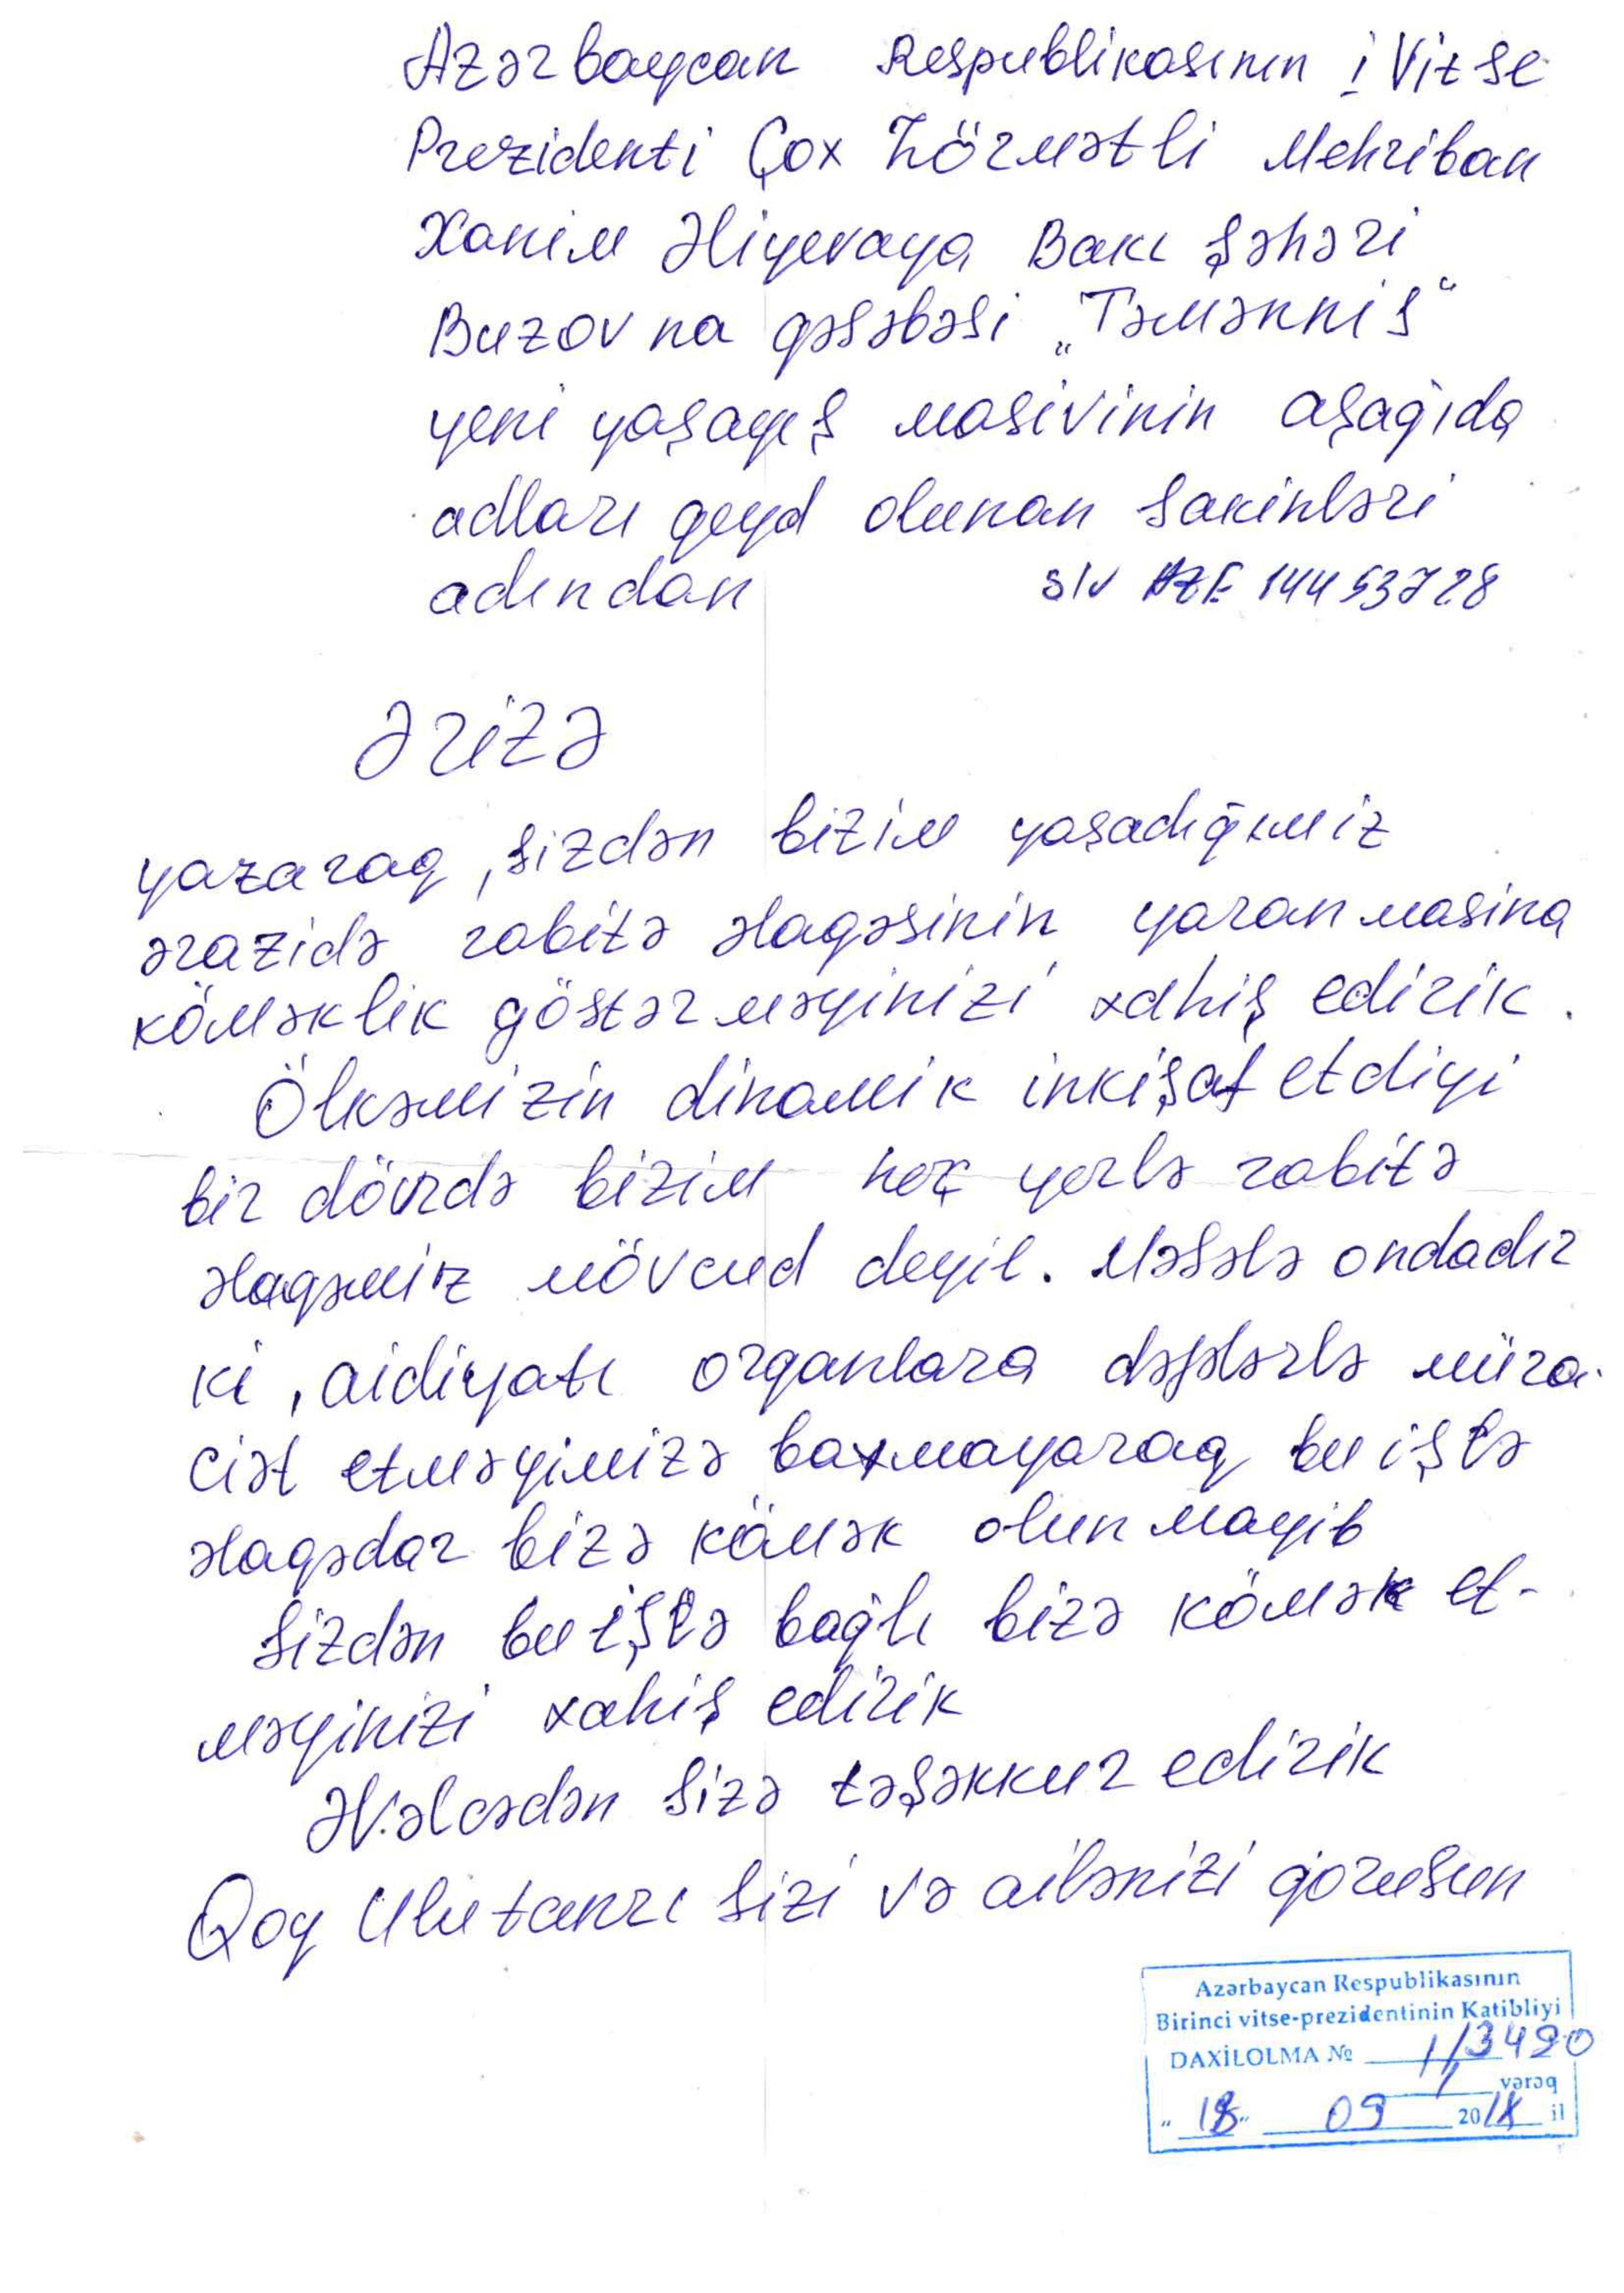 Azərbaycan Respublikasının İ Vitse
Prezidenti Çox hörmətli Mehriban
Xanim Əliyevaya Bakı şəhəri
Buzovna qəsəbəsi „Təmənnis“
yeni yaşayış masivinin aşağıda
adları qeyd olunan sakinləri
adından s/v AZE 14453728
Ərizə
yazaraq, sizdən bizim yaşadığımiz
ərazidə rabitə əlaqəsinin yaranmasina
köməklik göstərməyinizi xahiş edirik.
Ölkəmizin dinamik inkişaf etdiyi
bir dövrdə bizim heç yerlə rabitə
əlaqəmiz mövcud deyil. Məsələ ondadır
ki, aidiyatı organlara dəfələrlə müra-
ciət etməyimizə baxmayaraq bu işlə
əlaqədar bizə kömək olunmayib
Sizdən bu işlə bağlı bizə kömək et-
məyinizi xahiş edirik
Əvəlcədən sizə təşəkkur edirik
Qoy Ulu tanrı sizi və ailənizi qorusun
Azərbaycan Respublikasının
Birinci vitse-prezidentinin Katibliyi
DAXİLOLMA № 1/3490
vərəq
" 18 " 09 2018 il